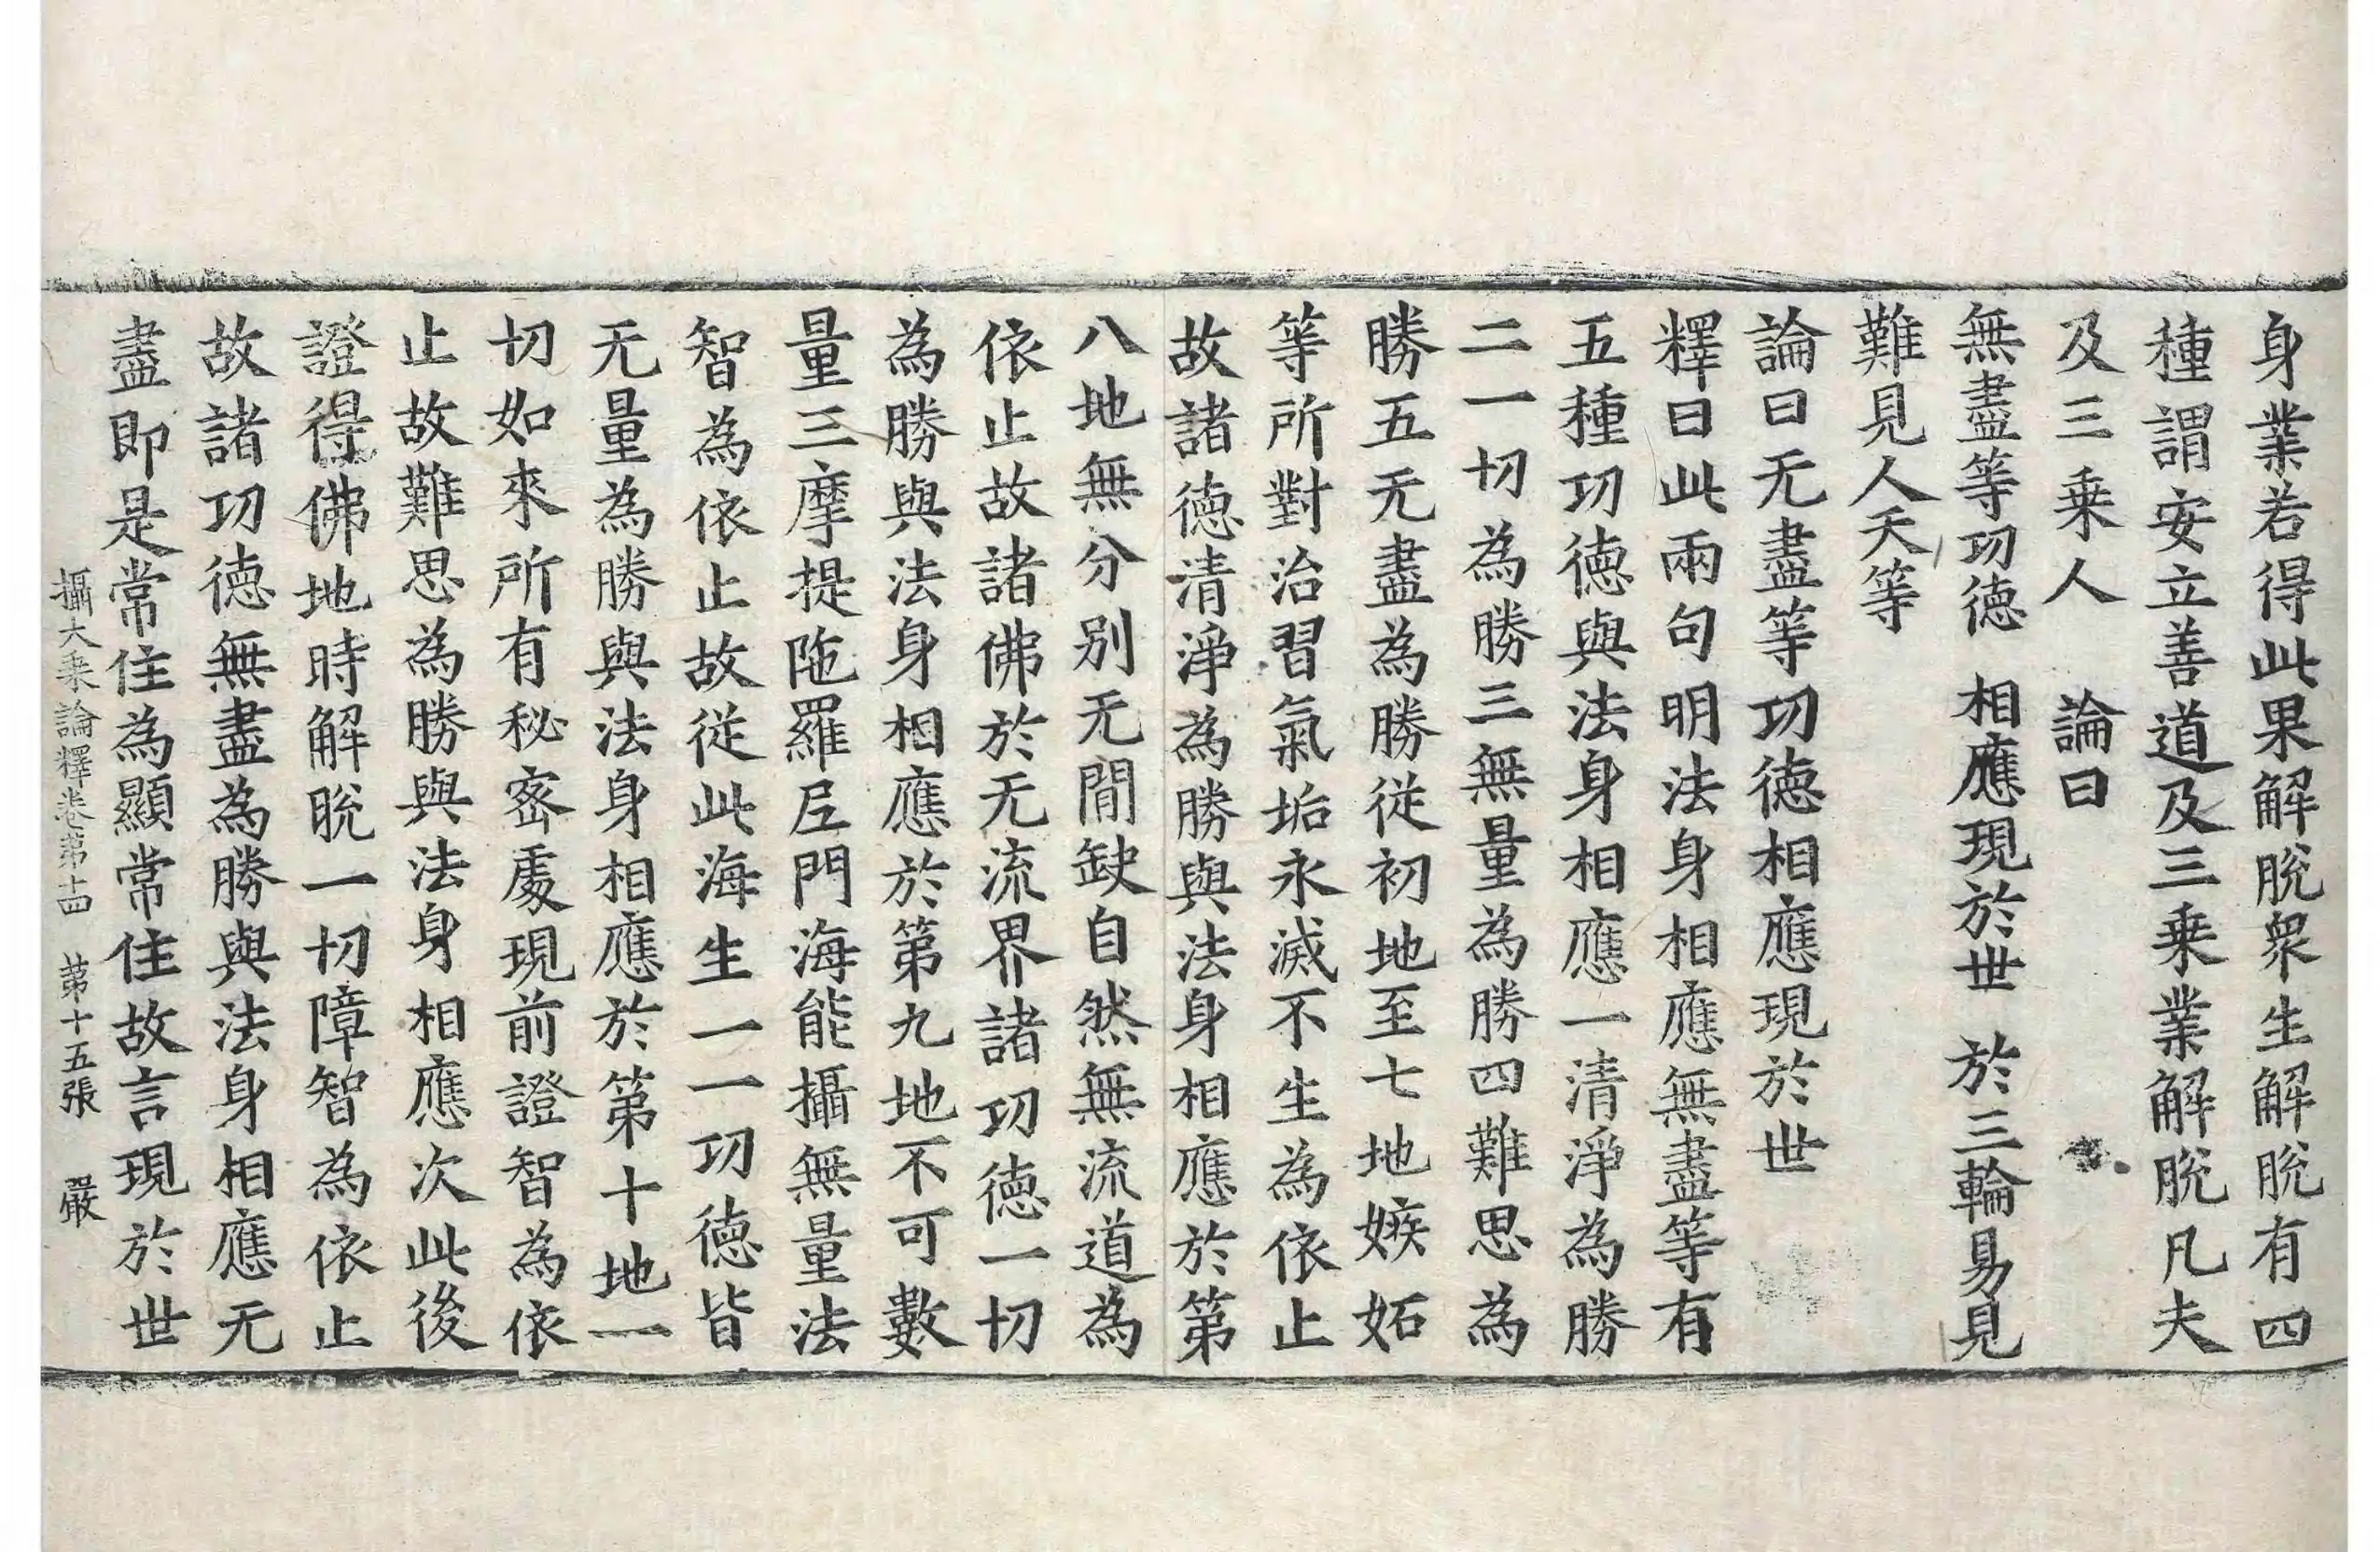 身業若得此果解脫衆生解脫有四
種謂安立善道及三乗業解脫凡夫
及三乗人　論曰
無盡等功德　相應現於世　於三輪易見
難見人天等
論曰无盡等功德相應現於世
釋曰此兩句明法身相應無盡等有
五種功德與法身相應一清淨為勝
二一切為勝三無量為勝四難思為
勝五无盡為勝從初地至七地嫉妬
等所對治習氣垢永滅不生為依止
故諸德清淨為勝與法身相應於第
八地無分別无閒缺自然無流道為
依止故諸佛於无流界諸功德一切
為勝與法身相應於第九地不可數
量三摩提陁羅尼門海能攝無量法
智為依止故從此海生一一功德皆
无量為勝與法身相應於第十地一
切如來所有秘密處現前證智為依
止故難思為勝與法身相應次此後
證得佛地時解脫一切障智為依止
故諸功德無盡為勝與法身相應无
盡即是常住為顯常住故言現於世
攝大乗論釋卷第十四　第十五張　嚴